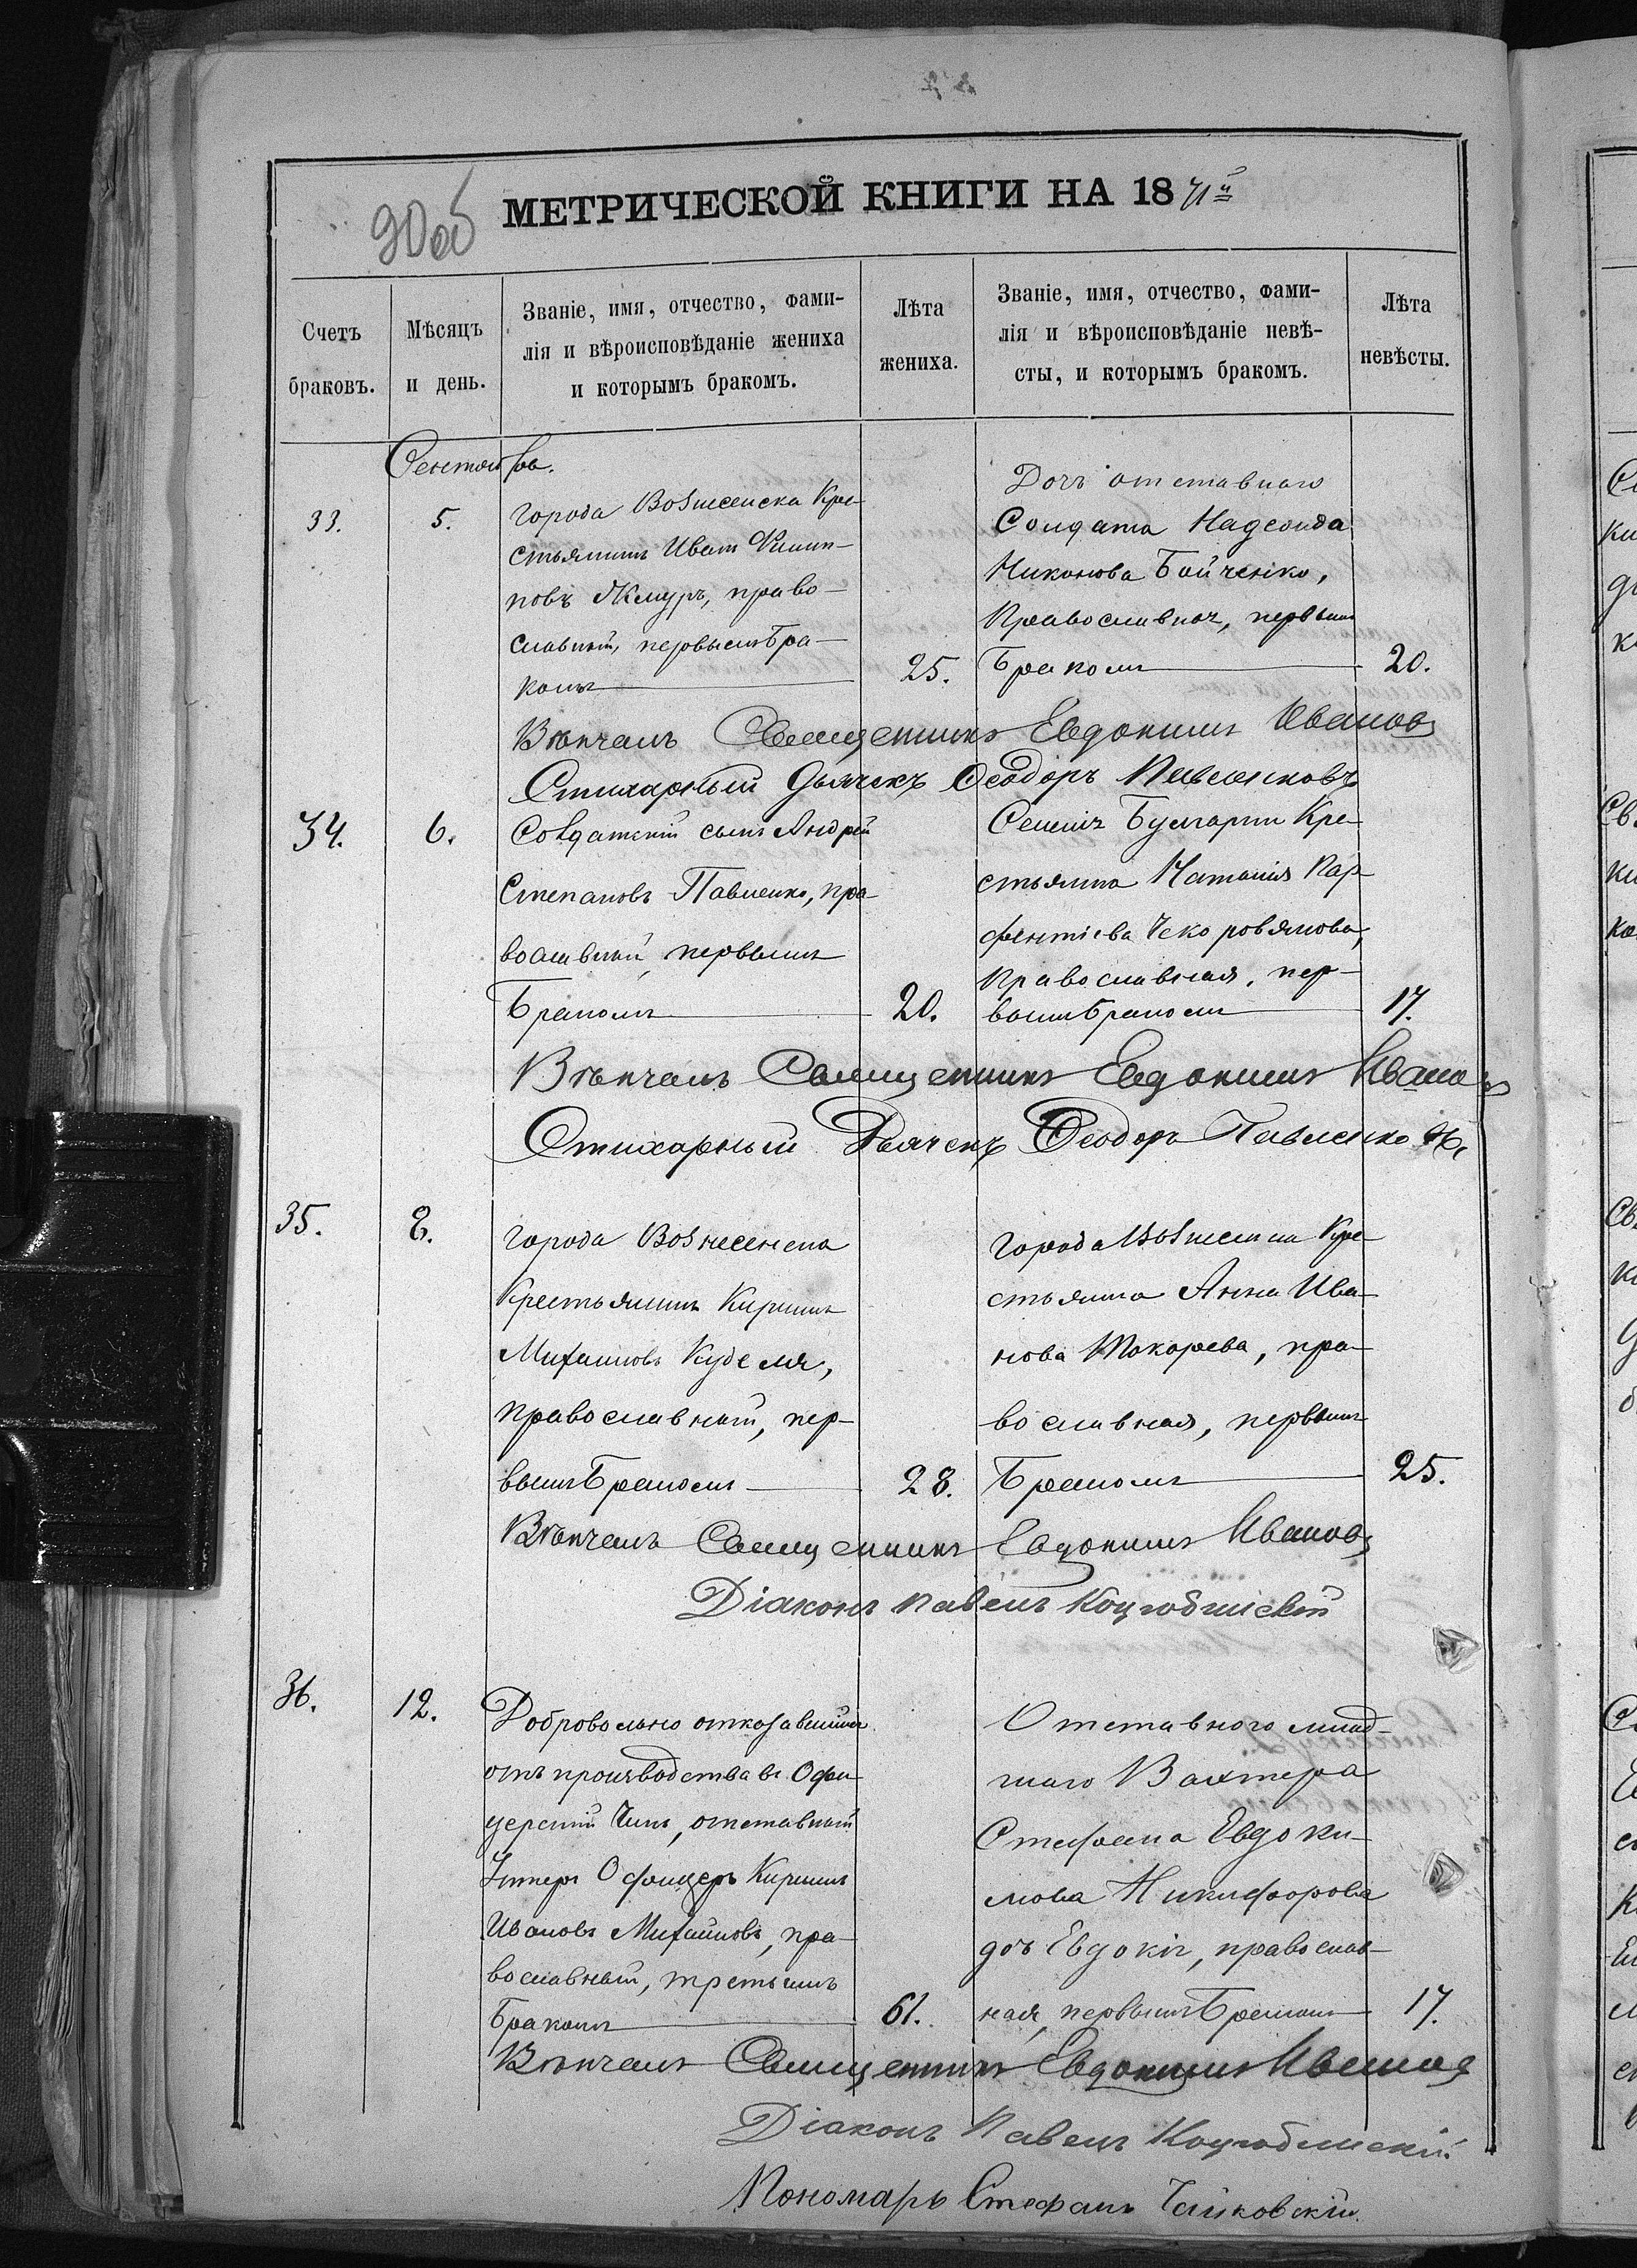 90об
МЕТРИЧЕСКОЙ КНИГИ НА 1871й
Счетъ браковъ.
Мѣсяцъ и день.
Званіе, имя, отчество, фами-
лія и вѣроисповѣданіе жениха
и которымъ бракомъ.
Лѣта жениха.
Званіе, имя, отчество, фами-
лія и вѣроисповѣданіе невѣ-
сты, и которымъ бракомъ.
Лѣта невѣсты.
Сентября.
33.
5.
города Вознесенска Кре-
стьянинъ Иванъ Филип-
повъ Жмуръ, право-
славный, первымъ бра-
комъ
25.
Дочь отставнаго
Солдата
Никонова Бойченко,
Православная, первымъ
бракомъ
20.
Вѣнчалъ Священникъ Евдокимъ Ивановъ
Стихарный Дьячекъ Ѳеодоръ Павленковъ
34.
6.
Солдатскій сынъ Андрей
Степановъ Павленко, пра-
вославный, первымъ
бракомъ
20.
Селенія Булгарки Кре-
стьянка Наталія Пар-
фентіева
Православная, пер-
вымъ бракомъ
17.
Вѣнчалъ Священникъ Евдокимъ Ивановъ
Стихарный Дьячекъ Ѳеодоръ Павленковъ
35.
8.
города Вознесенска
Крестьянинъ Кириллъ
Михайловъ Куделя,
православный, пер-
вымъ бракомъ
28.
города Вознесенска Кре-
стьянка Анна Ива-
нова Токарева, пра-
вославная, первымъ
бракомъ
25.
Вѣнчалъ Священникъ Евдокимъ Ивановъ
Діаконъ Павелъ Коцюбинскій
36.
12.
Добровольно отказавшійся
отъ производства въ Офи-
церскій Чинъ, отставный
Унтеръ Офицеръ Кириллъ
Ивановъ Михайловъ, пра-
вославный, третьимъ
бракомъ
61.
Отставного млад-
шаго Вахтера
Стефана Евдоки-
мова Никифорова
дочь Евдокія, православ-
ная, первымъ бракомъ
17.
Вѣнчалъ Священникъ Евдокимъ Ивановъ
Діаконъ Павелъ Коцюбинскій
Пономарь Стефанъ Чайковскій